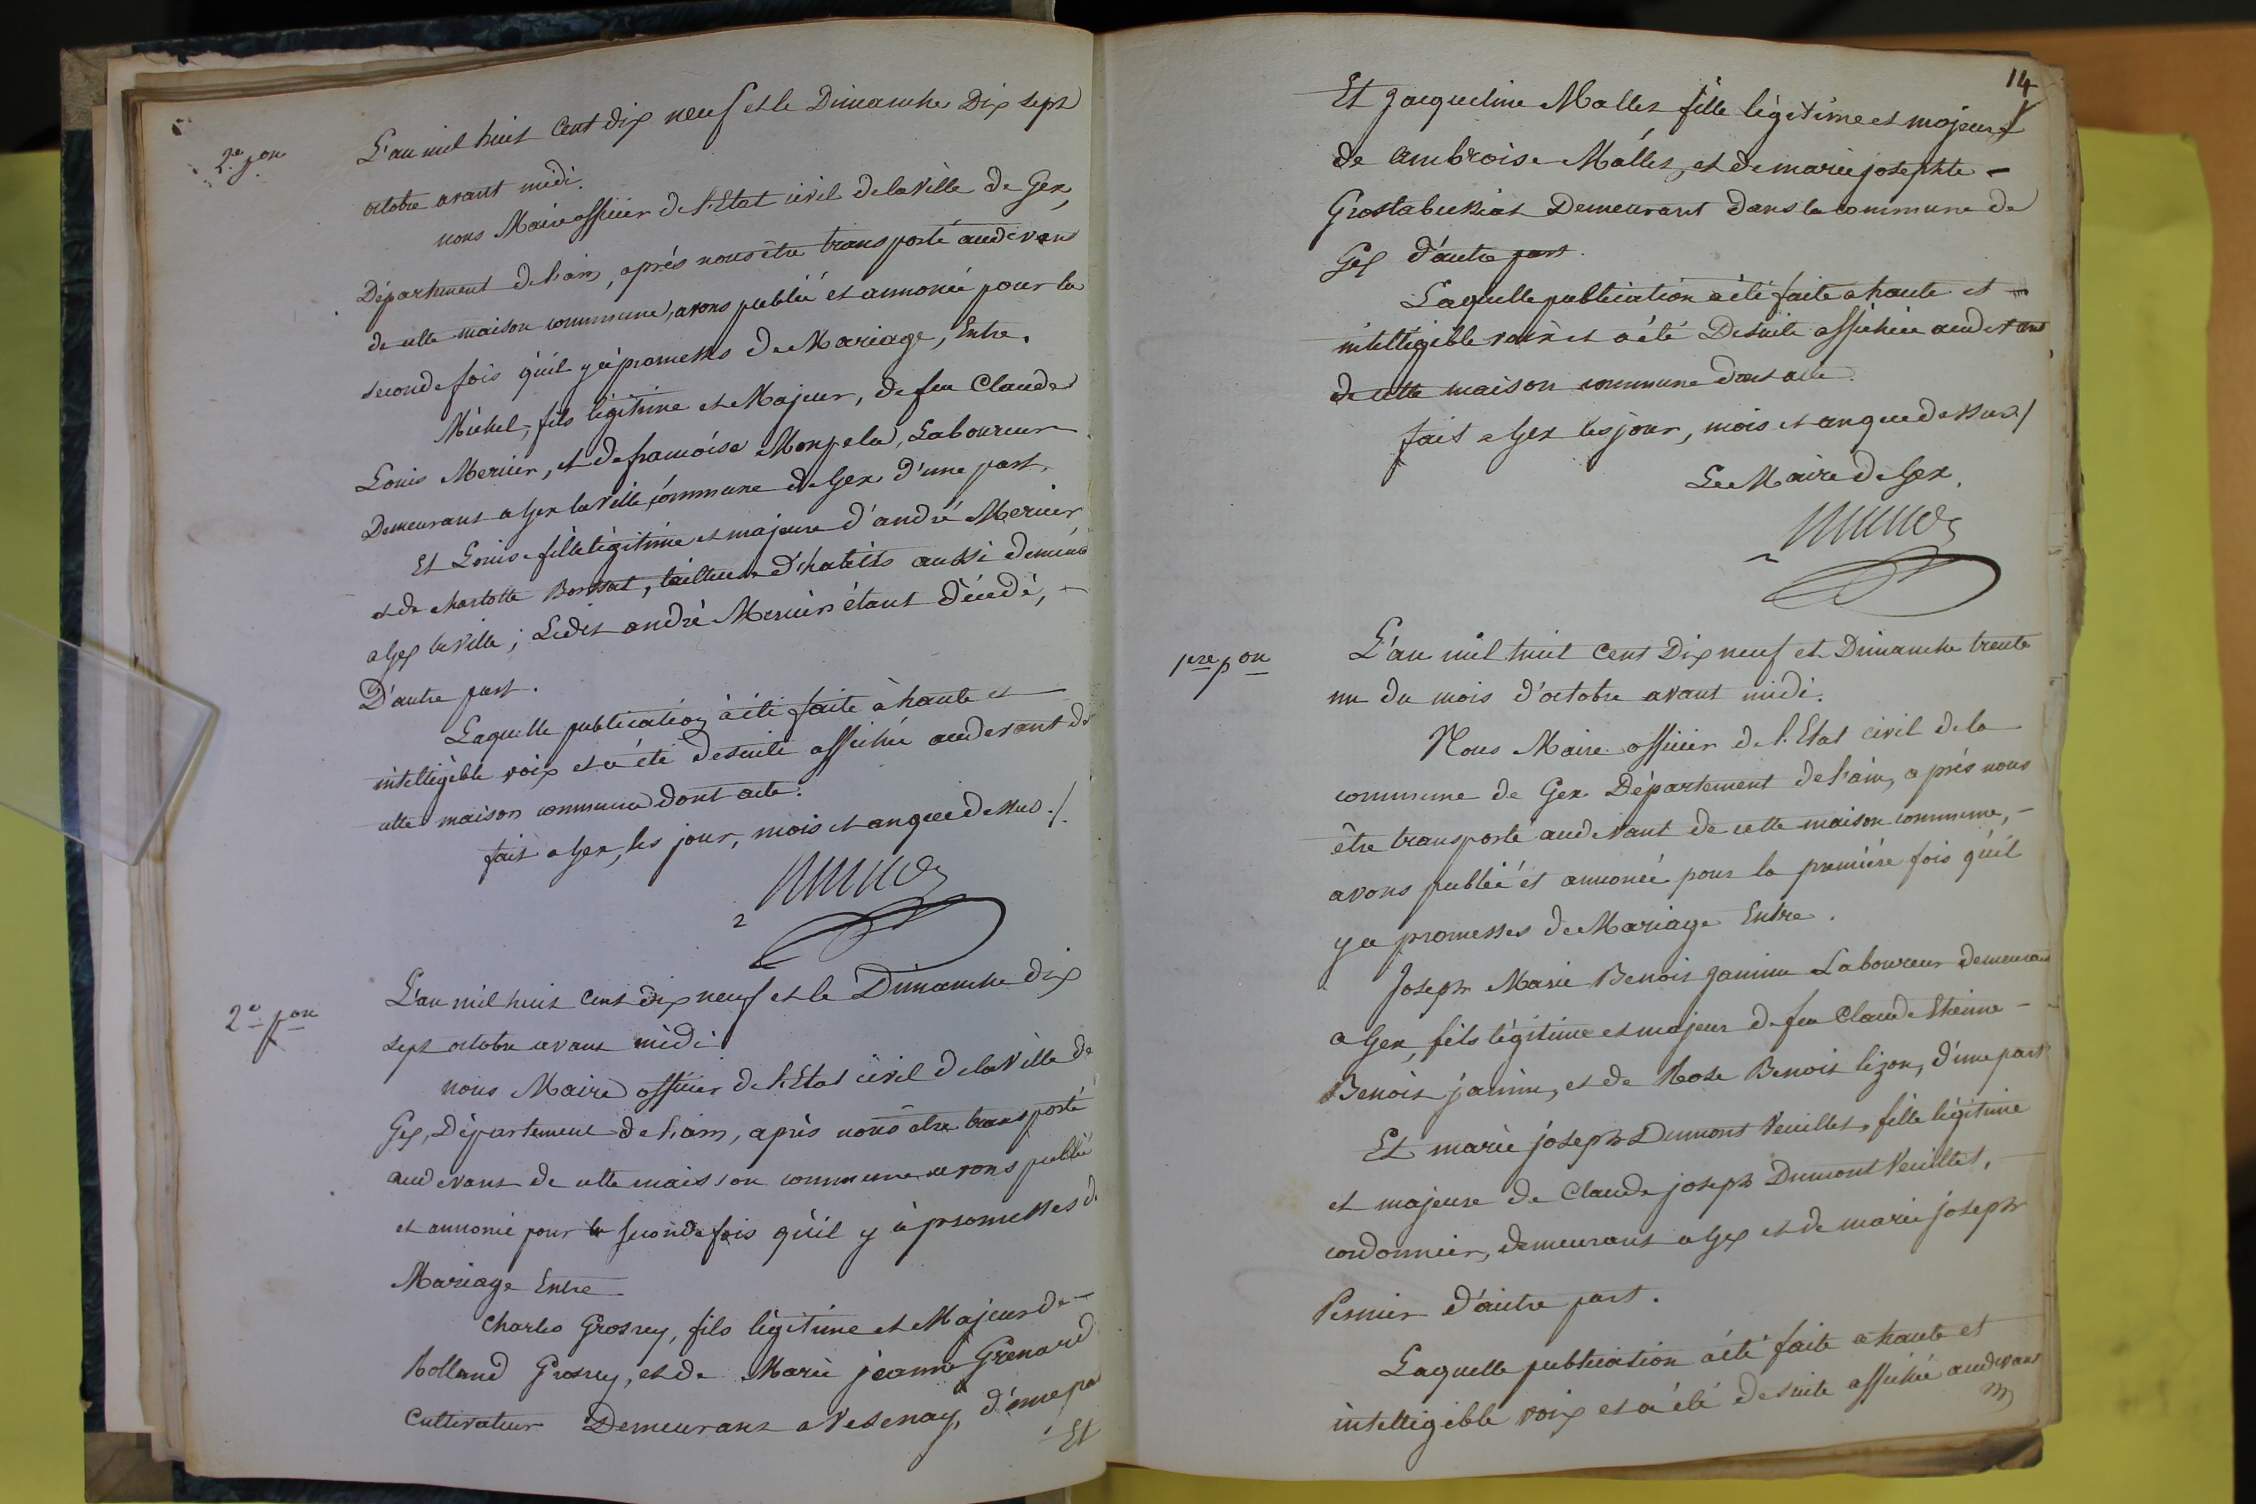 2e pon
L'an mil huit cent dix neuf et le Dimanche Dix sept
octobre avant midi.
nous Maire officier de l'Etat civil de la ville de Gex,
Département de l'ain, après nous être transporté audevant
de cette maison commune, avons publié et annoncé pour la
seconde fois qu'il y à promesses de Mariage, Entre.
Michel, fils légitime et Majeur, de feu Claude
Louis Mercier, et de francoise Monpela, Laboureur
Demeurant a Gex la ville, commune de Gex d'une part.
Et Louise fille légitime et majeure d'andré Mercier,
et de charlotte Borssat, tailleur d'habits aussi demeurt
a Gex la ville; Ledit andré Mercier étant décédé, -
D'autre part.
Laquelle publication à été faite à haute et
intelligible voix et a été desuite affichée audevant de
cette maison commune dont acte.
fait a Gex, les jour, mois et an que dessus ./.
2e pon
L'an mil huit cent dix neuf et le Dimanche dix
sept octobre avant midi
nous Maire officier de l'Etat civil de la Ville de
Gex, Département de l'ain, après nous être transporté
audevant de cette maison commune avons publié
et annoncé pour la seconde fois qu'il y à promesses de
Mariage Entre
Charles Grosrey, fils légitime et Majeur de -
Rolland Grosrey, et de Marie jeanne Grenard
Cultivateur Demeurant a Vesenay, d'une pa
Et
14
Et Jacqueline Mallet fille légitime et majeure
de ambroise Mállet, et de marie josephte -
Grostabussiat Demeurant dans la commune de
Gex d'autre part.
Laquelle publication à été faite a haute et
intelligible voix et a été Desuite affichée audevant
de cette maison commune dont acte.
fait a Gex les jour, mois et an que dessus /
Le Maire de Gex.
1re pon
L'an mil huit cent Dix neuf et Dimanche trente
un du mois d'octobre avant midi.
Nous Maire officier de l'Etat civil de la
commune de Gex Département de l'ain, après nous
être transporté audevant de cette maison commune, -
avons publié et annoncé pour la première fois qu'il
y a promesses de Mariage Entre.
Joseph Marie Benoit Janinn Laboureur demeurant
a Gex, fils légitime et majeur de feu Claude Etienne -
Benoit janinn, et de Rose Benoit lizon, d'une part
Et marie joseph Dumont Veuillet, fille légitime
et majeure de Claude joseph Dumont Veuillet, -
cordonnier, demeurant a Gex et de marie joseph
Pernier d'autre part.
Laquelle publication à été faite a haute et
intelligible voix et a été desuite affichée audevant